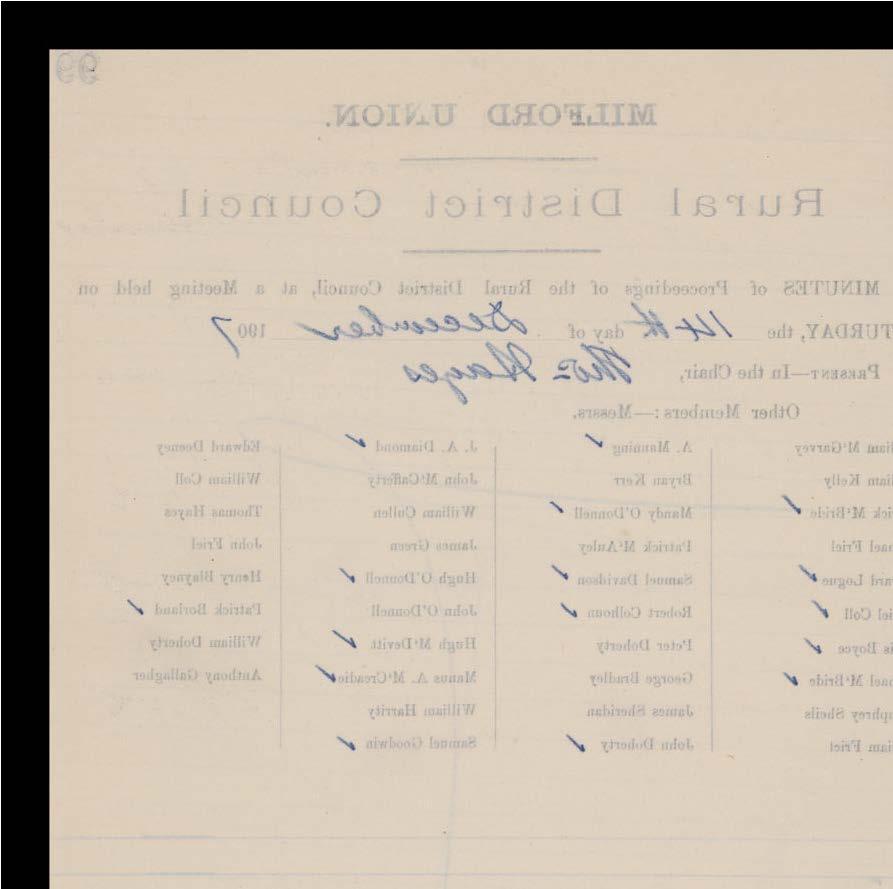 99
MILFORD UNION.
Rural District Council
MINUTES of Proceedings of the Rural District Council, at a Meeting held on
TURDAY, the 14th day of December 1907
PRESENT—In the Chair, Thos Hayes
Other Members:—Messrs.
liam M'Garvey
liam Kelly
ick M'Bride ✓
hael Friel
nard Logue ✓
iel Coll ✓
is Boyce ✓
hael M'Bride ✓
phrey Sheils
liam Friel
A. Manning ✓
Bryan Kerr
Mandy O'Donnell ✓
Patrick M'Auley
Samuel Davidson ✓
Robert Colhoun ✓
Peter Doherty
George Bradley
James Sheridan
John Doherty ✓
J. A. Diamond ✓
John M'Cafferty
William Cullen
James Green
Hugh O'Donnell ✓
John O'Donnell
Hugh M'Devitt ✓
Manus A. M'Creadie ✓
William Harrity
Samuel Goodwin ✓
Edward Deeney
William Coll
Thomas Hayes
John Friel
Henry Blayney
Patrick Borland ✓
William Doherty
Anthony Gallagher